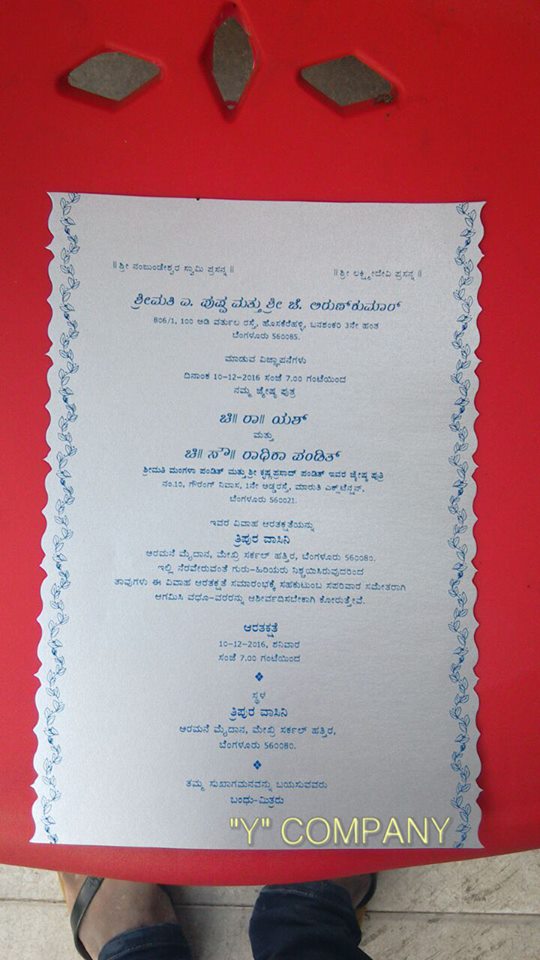 ॥ ಶ್ರೀ ನಂಜುಂಡೇಶ್ವರ ಸ್ವಾಮಿ ಪ್ರಸನ್ನ ॥ ॥ ಶ್ರೀ ಲಕ್ಷ್ಮೀದೇವಿ ಪ್ರಸನ್ನ ॥
ಶ್ರೀಮತಿ ಎ. ಪುಷ್ಪ ಮತ್ತು ಶ್ರೀ ಜೆ. ಅರುಣ್‌ಕುಮಾರ್
806/1, 100 ಅಡಿ ವರ್ತುಲ ರಸ್ತೆ, ಹೊಸಕೆರೆಹಳ್ಳಿ, ಬನಶಂಕರಿ 3ನೇ ಹಂತ
ಬೆಂಗಳೂರು 560085.
ಮಾಡುವ ವಿಜ್ಞಾಪನೆಗಳು
ದಿನಾಂಕ 10-12-2016 ಸಂಜೆ 7.00 ಗಂಟೆಯಿಂದ
ನಮ್ಮ ಜ್ಯೇಷ್ಠ ಪುತ್ರ
ಚಿ॥ ರಾ॥ ಯಶ್
ಮತ್ತು
ಚಿ॥ ಸೌ॥ ರಾಧಿಕಾ ಪಂಡಿತ್
ಶ್ರೀಮತಿ ಮಂಗಳಾ ಪಂಡಿತ್ ಮತ್ತು ಶ್ರೀ ಕೃಷ್ಣಪ್ರಸಾದ್ ಪಂಡಿತ್ ಇವರ ಜ್ಯೇಷ್ಠ ಪುತ್ರಿ
ನಂ.10, ಗೌರಂಗ್ ನಿವಾಸ, 1ನೇ ಅಡ್ಡರಸ್ತೆ, ಮಾರುತಿ ಎಕ್ಸ್‌ಟೆನ್ಷನ್,
ಬೆಂಗಳೂರು 560021.
ಇವರ ವಿವಾಹ ಆರತಕ್ಷತೆಯನ್ನು
ತ್ರಿಪುರ ವಾಸಿನಿ
ಅರಮನೆ ಮೈದಾನ, ಮೇಖ್ರಿ ಸರ್ಕಲ್ ಹತ್ತಿರ, ಬೆಂಗಳೂರು 560080.
ಇಲ್ಲಿ ನೆರವೇರುವಂತೆ ಗುರು-ಹಿರಿಯರು ನಿಶ್ಚಯಿಸಿರುವುದರಿಂದ
ತಾವುಗಳು ಈ ವಿವಾಹ ಆರತಕ್ಷತೆ ಸಮಾರಂಭಕ್ಕೆ ಸಹಕುಟುಂಬ ಸಪರಿವಾರ ಸಮೇತರಾಗಿ
ಆಗಮಿಸಿ ವಧೂ-ವರರನ್ನು ಆಶೀರ್ವದಿಸಬೇಕಾಗಿ ಕೋರುತ್ತೇವೆ.
ಆರತಕ್ಷತೆ
10-12-2016, ಶನಿವಾರ
ಸಂಜೆ 7.00 ಗಂಟೆಯಿಂದ
ಸ್ಥಳ
ತ್ರಿಪುರ ವಾಸಿನಿ
ಅರಮನೆ ಮೈದಾನ, ಮೇಖ್ರಿ ಸರ್ಕಲ್ ಹತ್ತಿರ,
ಬೆಂಗಳೂರು 560080.
ತಮ್ಮ ಸುಖಾಗಮನವನ್ನು ಬಯಸುವವರು
ಬಂಧು-ಮಿತ್ರರು
"Y" COMPANY